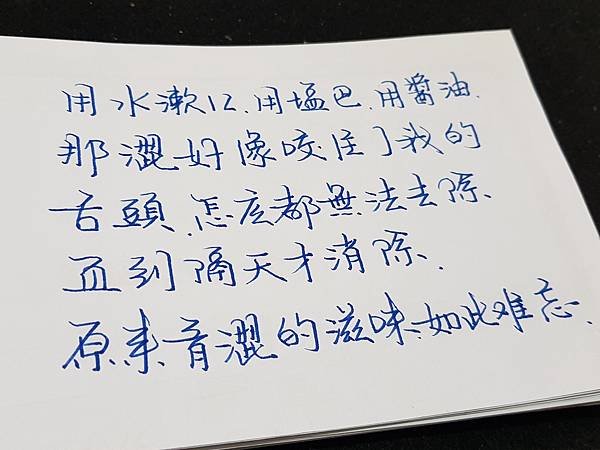 用水漱口.用塩巴.用醬油.
那澀好像咬住了我的
舌頭.怎底都無法去除、
直到隔天才消除.
原来青澀的滋味、如此难忘.